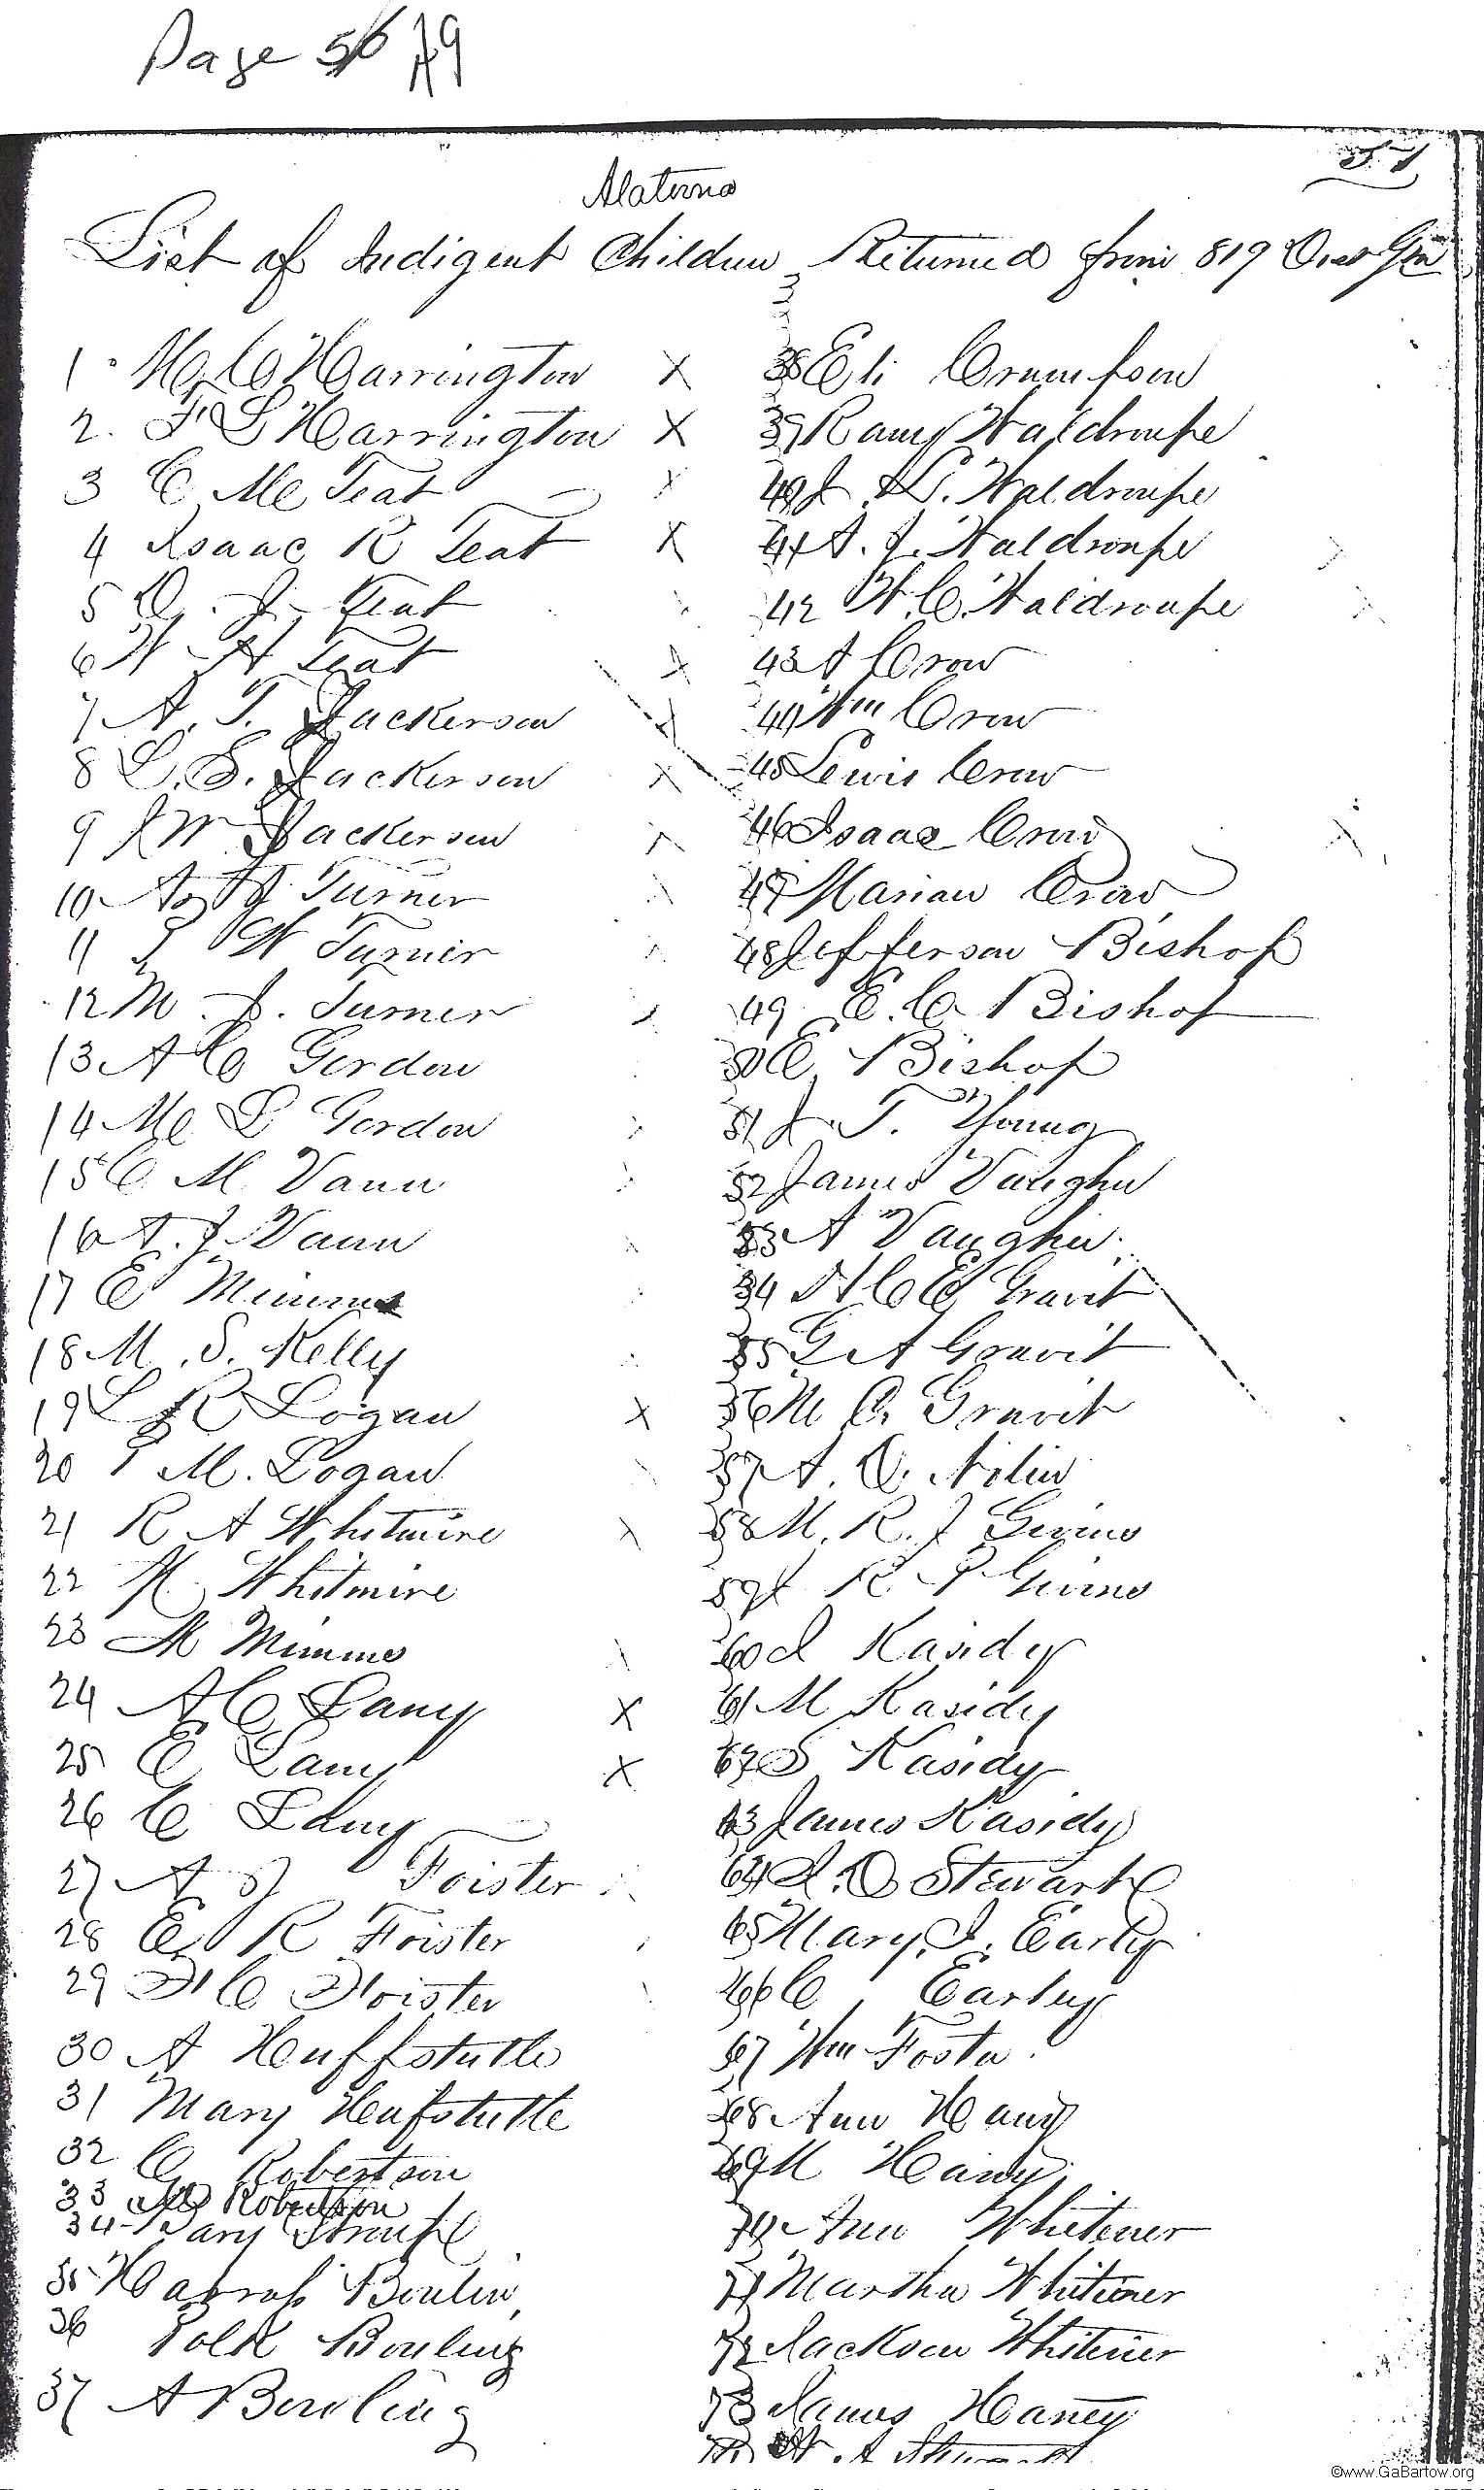 Page 56 A9
51
Alatoona
List of Indigent Children Returned from 819 Dist GM
1 M C Harrington X
2. F L Harrington X
3 C Mc Teat X
4 Isaac R Teat X
5 D. J. Teat
6 W H Teat X
7 A. T. Jackerson X
8 L. S. Jackerson X
9 J W Jackerson X
10 A. J Turner
11 W Turner
12 M. J. Turner
13 A C Gordon
14 Mc L Gordon
15 C M Vann
16 A. J Vann
17 E Mimms
18 M. S. Kelly
19 L R Logan X
20 M. Logan
21 R A Whitmire X
22 M Whitmire
23 M Mimms
24 A C Lany X
25 E Lany X
26 C Lany
27 A J Foister
28 E R Foister
29 F C Foister
30 A Huffstutle
31 Mary Hufstutle
32 C Robertson
33 Robertson
34 Stroupe
35 Boulin
36 Polk Bouling
37 A Bowling
38 Eli Crumpson
39 Rany Waldroupe
40 J L. Waldroupe
41 A. J. Waldroupe
42 W. C. Waldroupe
43 A Crow
44 Wm Crow
45 Lewis Crow
46 Isaac Crow
47 Marian Crow
48 Jefferson Bishop
49 E. C. Bishop
50 E Bishop
51 J. T. Young
52 James Vaughn
53 A Vaughn
54 H C E Gravit
55 G A Gravit
56 M A. Gravit
57 A. D.
58 M. R. J Givins
59 J R P Givins
60 J Kasidy
61 M Kasidy
62 S Kasidy
63 James Kasidy
64 J. D Stewart
65 Mary J. Early
66 C Earley
67 Wm Foster
68 Ann Hany
69 M Hany
70 Ann Whitener
71 Martha Whitener
72 Jackson Whitener
73 James Haney
©www.GaBartow.org